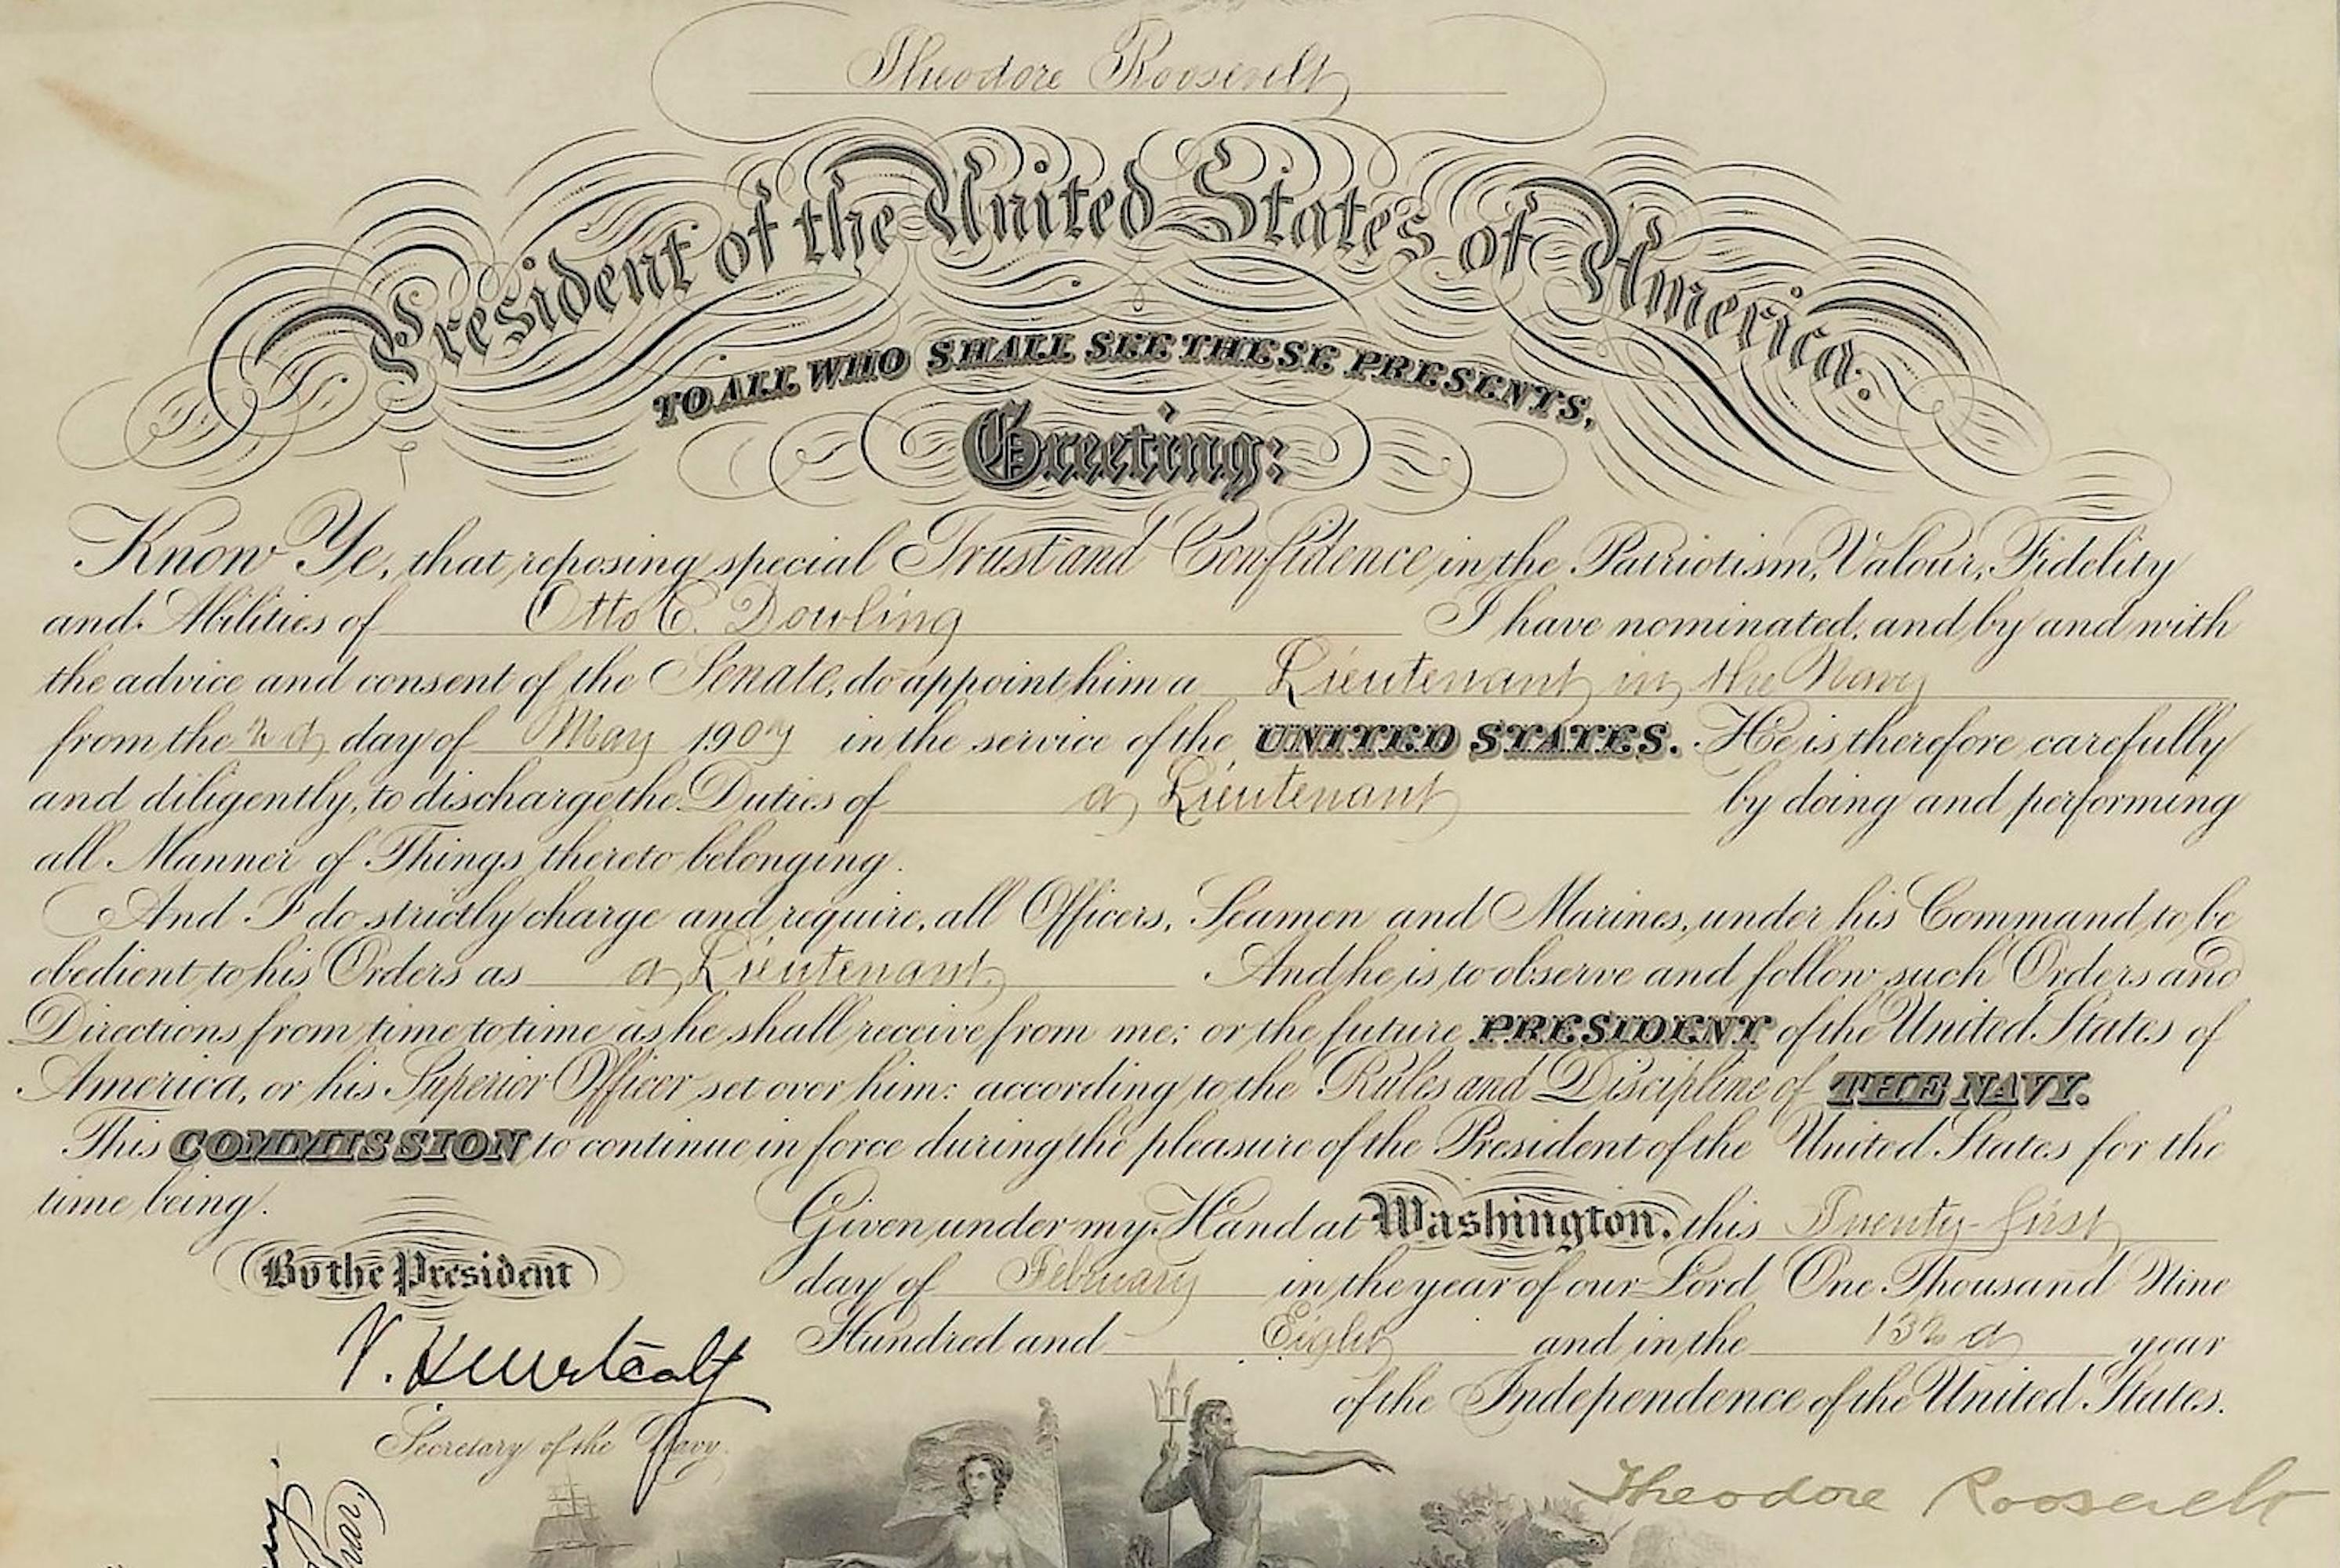 Theodore Roosevelt
President of the United States of America.
TO ALL WHO SHALL SEE THESE PRESENTS,
Greeting:
Know Ye, that reposing special Trust and Confidence in the Patriotism, Valour, Fidelity
and Abilities of Otto C. Dowling I have nominated, and by and with
the advice and consent of the Senate, do appoint him a Lieutenant in the Navy
from the 2d day of May 1907 in the service of the UNITED STATES. He is therefore carefully
and diligently, to discharge the Duties of a Lieutenant by doing and performing
all Manner of Things thereto belonging.
And I do strictly charge and require, all Officers, Seamen and Marines, under his Command to be
obedient to his Orders as a Lieutenant. And he is to observe and follow such Orders and
Directions from time to time as he shall receive from me; or the future PRESIDENT of the United States of
America, or his Superior Officer set over him: according to the Rules and Discipline of THE NAVY.
This COMMISSION to continue in force during the pleasure of the President of the United States for the
time being.
Given under my Hand at Washington, this Twenty-first
day of February in the year of our Lord One Thousand Nine
Hundred and Eight and in the 132d year
of the Independence of the United States.
By the President
V. H. Metcalf
Secretary of the Navy.
Theodore Roosevelt